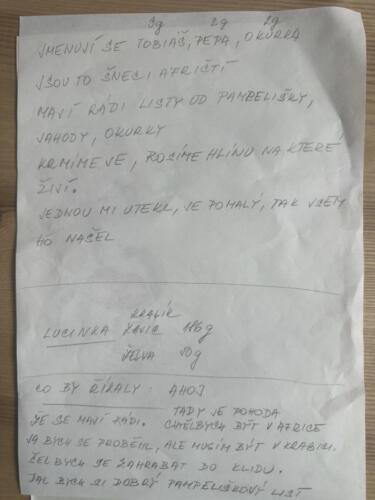 3g 2g 2g
JMENUJÍ SE TOBIÁŠ, PEPA, OKURKA
JSOU TO ŠNECI AFRIČTÍ
MAJÍ RÁDI LISTY OD PAMPELIŠKY,
JAHODY, OKURKY
KRMÍME JE, ROSÍME HLÍNU NA KTERÉ
ŽIJÍ.
JEDNOU MI UTEKL, JE POMALÝ, TAK JSEM
HO NAŠEL
KRALÍK
LUCINKA 186g
ŽELVA 50g
CO BY ŘÍKALY: AHOJ
TADY JE POHODA
ŽE SE MAJÍ RÁDI. CHTĚLBYCH BÝT V AFRICE
JÁ BYCH SE PROBĚHL, ALE MUSÍM BÝT V KRABICI.
ŠEL BYCH SE ZAHRABAT DO KLIDU.
DAL BYCH SI DOBRÝ PAMPELIŠKOVÝ LIST